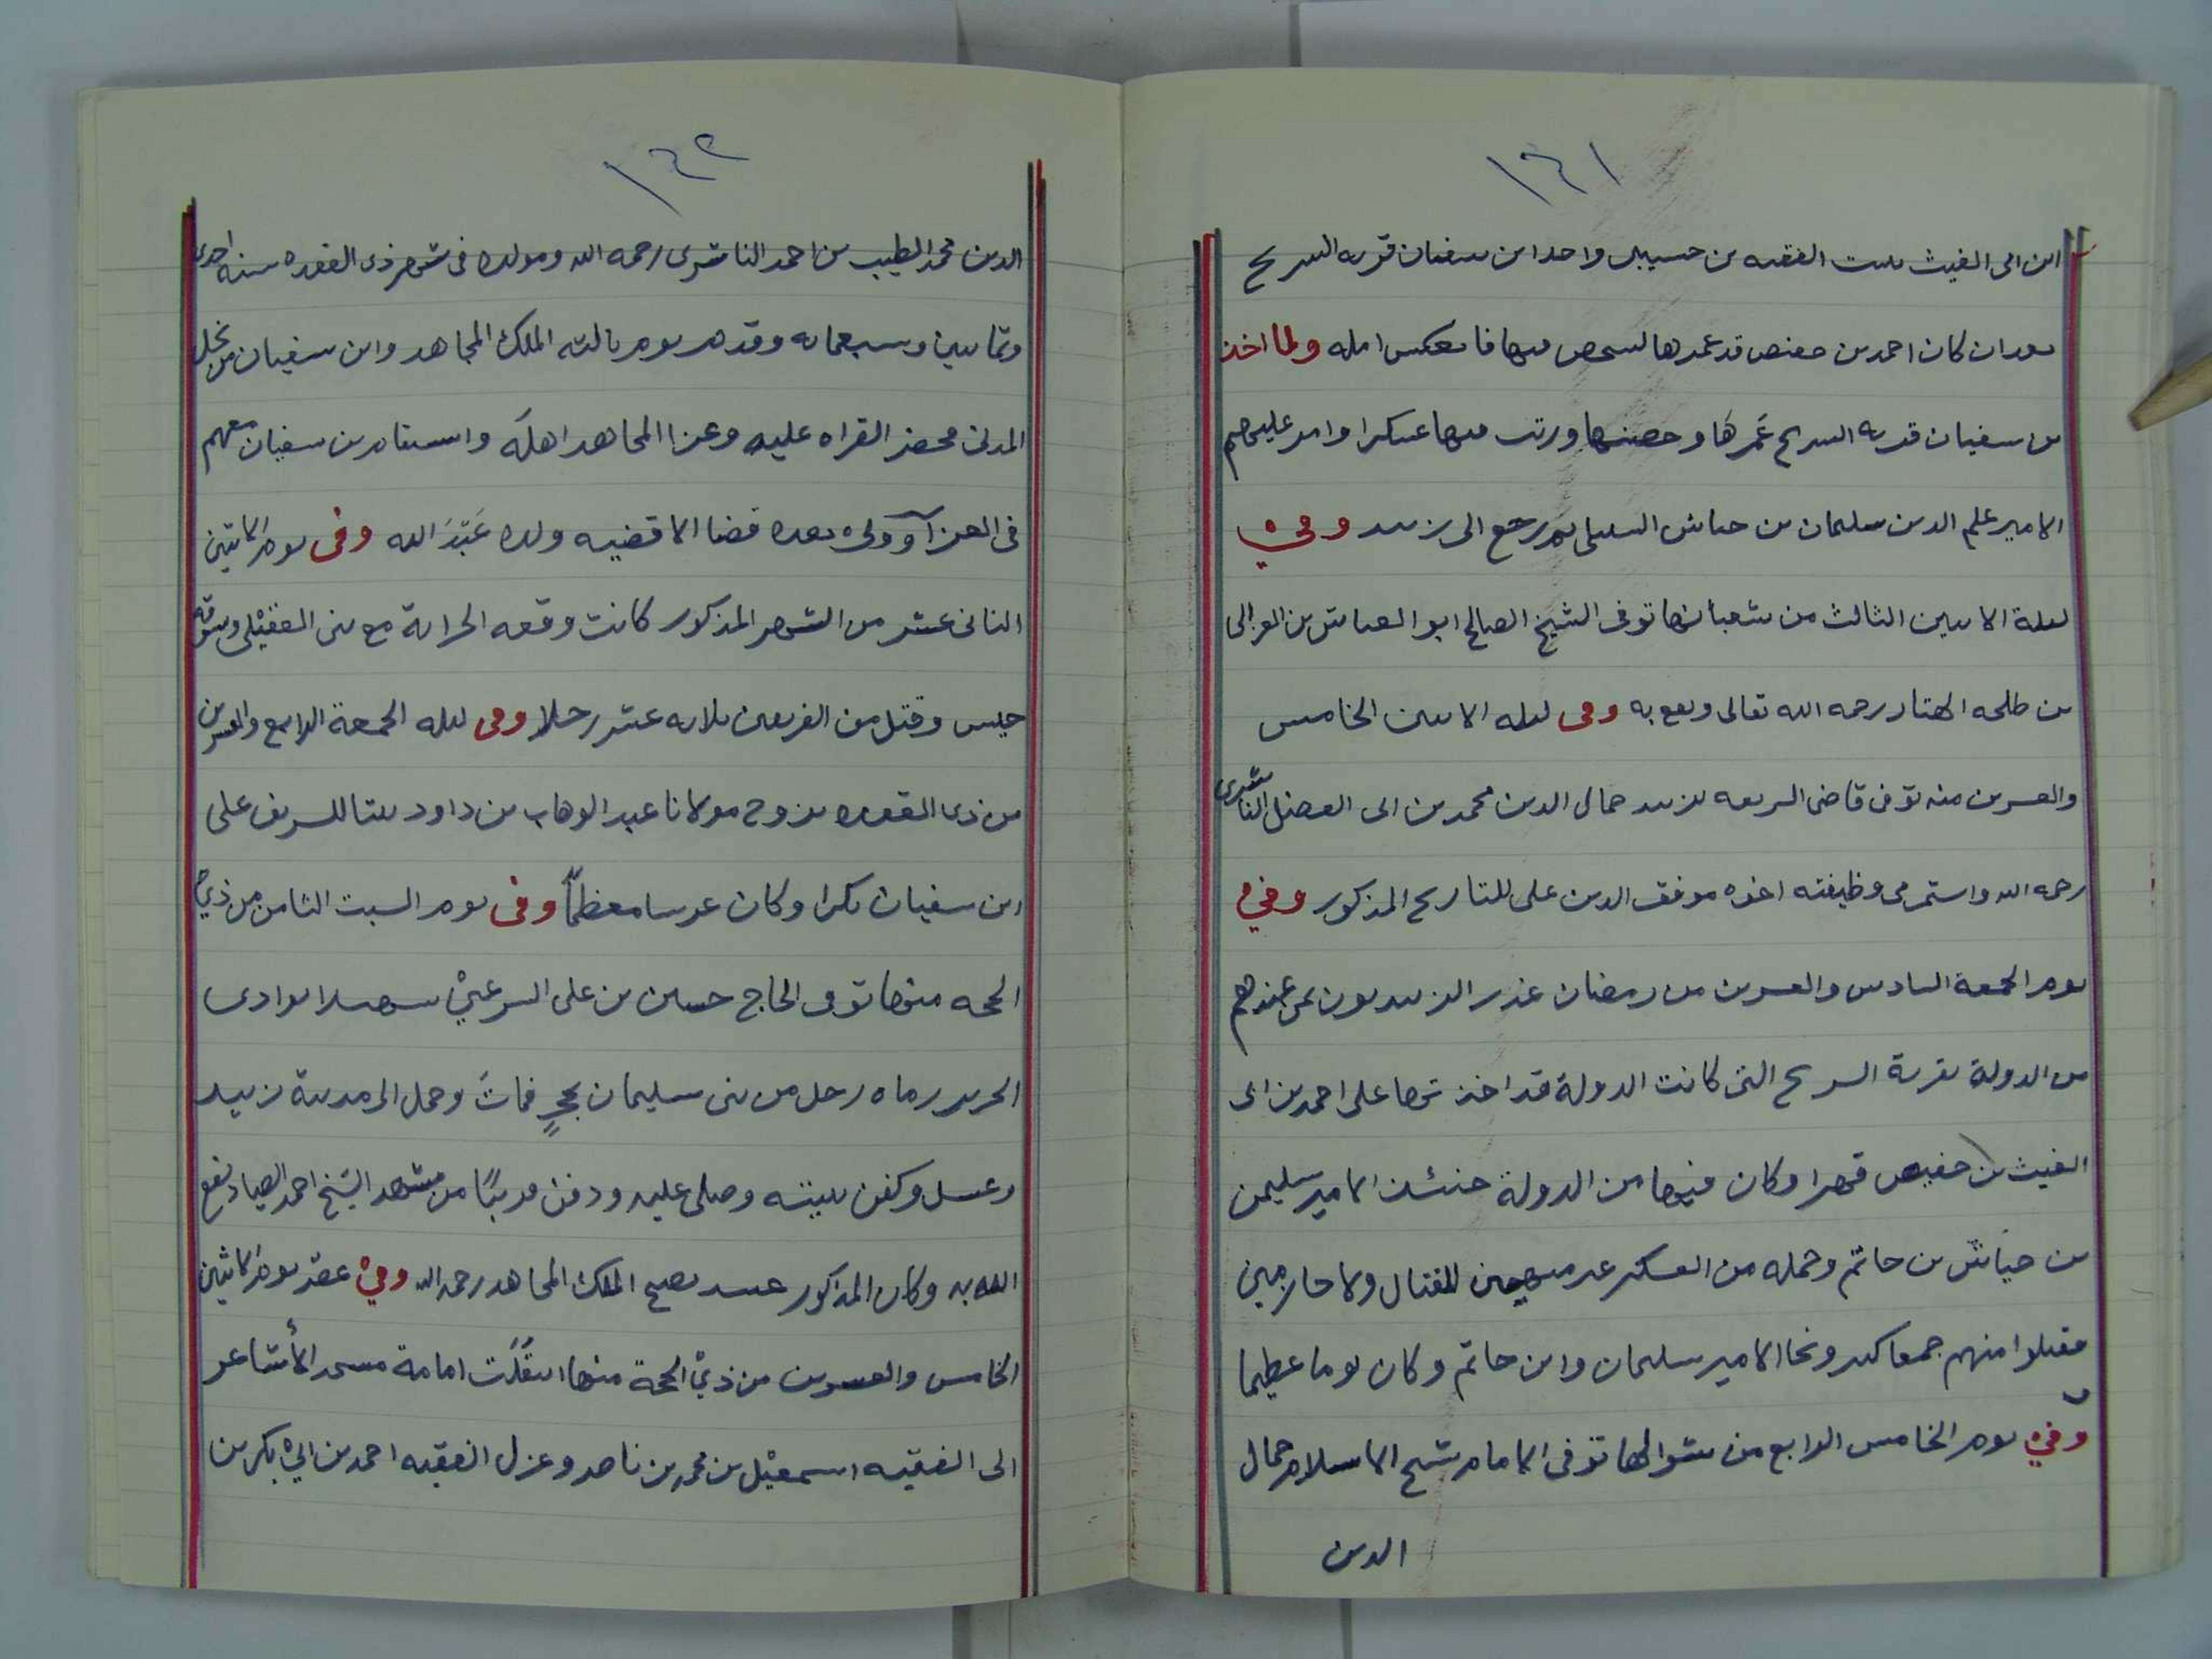 ١٦١
ابن ابى الغيث ببيت الفقيه بن حسيبر واخذ ابن سفيان قريه السريح
بعد ان كان احمد بن حفيص قد عمرها ليتحصن فيها فانعكس امله ولما اخذ
بن سفيان قريه السريح عَمرهَا وحصنها ورتب فيها عسكرا وامر عليهم
الامير علم الدين سليمان بن جياش السنبلى ثم رجع الى زبيد وفي
ليلة الاثنين الثالث من شعبانها توفى الشيخ الصالح ابو العباس بن الغزالى
بن طلحه الهتار رحمه الله تعالى ونفع به وفى ليله الاثنين الخامس
والعشرين منه توفى قاضى الشريعه بزبيد جمال الدين محمد بن ابى الفضل الناشرى
رحمه الله واستمر فى وظيفته اخوه موفق الدين على للتاريخ المذكور وفي
يوم الجمعة السادس والعشرين من رمضان غدر الزيديون بمن عندهم
من الدولة بقرية السريح التى كانت الدولة قد اخذتها على احمد بن ابى
الغيث بن حفيص قهرا وكان فيها من الدولة حنئذ الامير سليمن
بن جيَاش بن حاتم وجمله من العسكر غير متهيين للقتال ولا حازمين
فقتلوا منهم جمعا كبير ونجا الامير سليمان وابن حاتم وكان يوما عظيما
وفي يوم الخامس الرابع من شوالها توفى الامام شيخ الاسلام جمال
الدين
١٦٢
الدين محمد الطيب بن احمد الناشرى رحمه الله ومولده فى شهر ذى القعده سنه احدى
وثمانين وسبعمايه وقدم يوم ثالثه الملك المجاهد وابن سفيان من نخل
المدنى فحضر القراه عليه وعزا المجاهد اهله واستقام بن سفيان معهم
فى العزآ وولى بعده قضا الاقضيه ولده عَبْدَ الله وفى يوم الاثنين
الثانى عشر من الشهر المذكور كانت وقعه الحرابة مع بنى العقيْلى وسوقه
حيس وقتل من الفريقين ثلاثه عشر رجلا وفى ليله الجمعة الرابع والعشرين
من ذى القعده تزوج مولانا عبد الوهاب بن داود ببنتا للشريف على
ابن سفيان بكرا وكان عرسا معظماً وفى يوم السبت الثامن من ذيْ
الحجه منها توفى الحاج حسين بن على الشرعبيْ شهيدا بوادى
الحرير رماه رجل من بنى سليمان بحجرٍ فماتَ وحمل الى مدينة زبيد
وغسل وكفن ببيته وصلى عليه ودفن قريبًا من مشهد الشيخ احمد الصياد نفع
الله به وكان المذكور عبيد يصبح الملك المجاهد رحمه الله وفيْ عصر يوم الاثنين
الخامس والعشرين من ذيْ الحجة منها انتقلت امامة مسجد الأشاعر
الى الفقيه اسمعيْل بن محمد بن ناصر وعزل الفقيه احمد بن ابيْ بكر بن